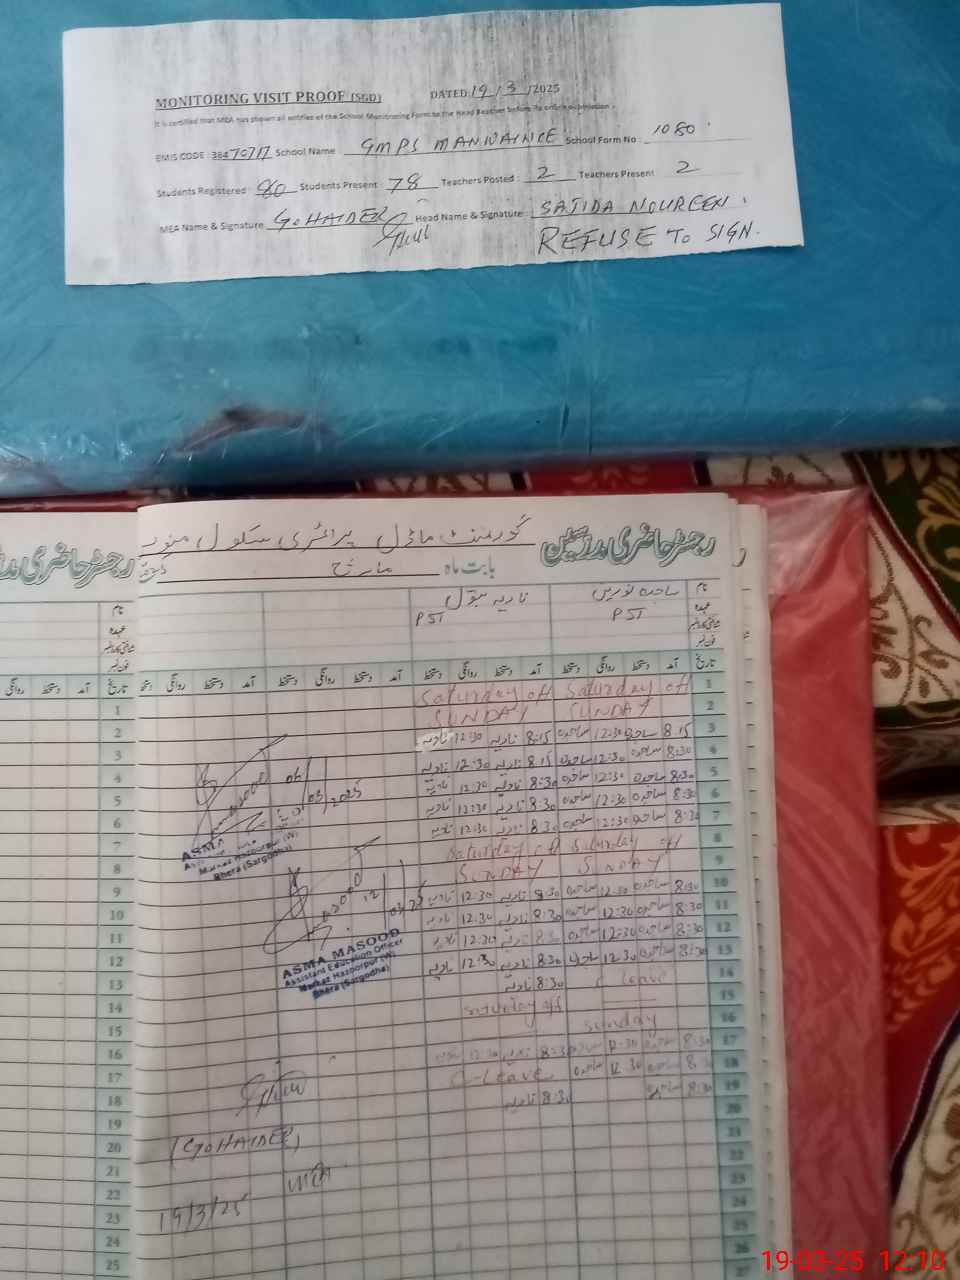 MONITORING VISIT PROOF (SGD) DATED: 19/3/2025
It is certified that MEA has shown all entries of the School Monitoring Form to the Head Teacher before its online submission.
EMIS CODE: 38470717 School Name GMPS School Form No: 1080
Students Registered: 80 Students Present: 78 Teachers Posted: 2 Teachers Present 2
MEA Name & Signature Head Name & Signature: SAJIDA NOUREEN.
REFUSE TO SIGN.
رجسٹر حاضری مدرسین گورنمنٹ ماڈل پرائمری سکول
بابت ماہ مارچ
نام ساجدہ نورین نادیہ بتول
عہدہ PST PST
تاریخ آمد دستخط روانگی دستخط آمد دستخط روانگی دستخط آمد دستخط روانگی دستخط
1 Saturday off Saturday off
2 SUNDAY SUNDAY
3 8.15 ساجدہ 12:30 ساجدہ 8:15 نادیہ 12:30 نادیہ
4 8:30 ساجدہ 12:30 ساجدہ 8.15 نادیہ 12:30 نادیہ
5 8:30 ساجدہ 12:30 ساجدہ 8:30 نادیہ 12:30 نادیہ
6 8:30 ساجدہ 12:30 ساجدہ 8:30 نادیہ 12:30 نادیہ
7 8:30 ساجدہ 12:30 ساجدہ 8:30 نادیہ 12:30 نادیہ
8 Saturday off Saturday off
9 SUNDAY SUNDAY
10 8:30 ساجدہ 12:30 ساجدہ 8:30 نادیہ 12:30 نادیہ
11 8:30 ساجدہ 12:30 ساجدہ 8:30 نادیہ 12:30 نادیہ
12 8:30 ساجدہ 12:30 ساجدہ 8:30 نادیہ 12:30 نادیہ
13 8:30 ساجدہ 12:30 ساجدہ 8:30 نادیہ 12:30 نادیہ
14 leave 8:30 نادیہ
15 Saturday off
16 Sunday
17 8:30 ساجدہ 12:30 ساجدہ 8:30 نادیہ 12:30 نادیہ
18 8:30 ساجدہ 12:30 ساجدہ C-Leave
19 8:30 ساجدہ 8:30 نادیہ
20
21
22
23
24
25
26
27
03/2025
ASMA
Markaz Hazoorpur (W)
Bhera (Sargodha)
12
ASMA MASOOD
Assistant Education Officer
Markaz Hazoorpur (W)
Bhera (Sargodha)
19/3/25
رجسٹر حاضری
نام
عہدہ
فون نمبر
تاریخ آمد دستخط روانگی
1
2
3
4
5
6
7
8
9
10
11
12
13
14
15
16
17
18
19
20
21
22
23
24
25
19-03-25 12:10